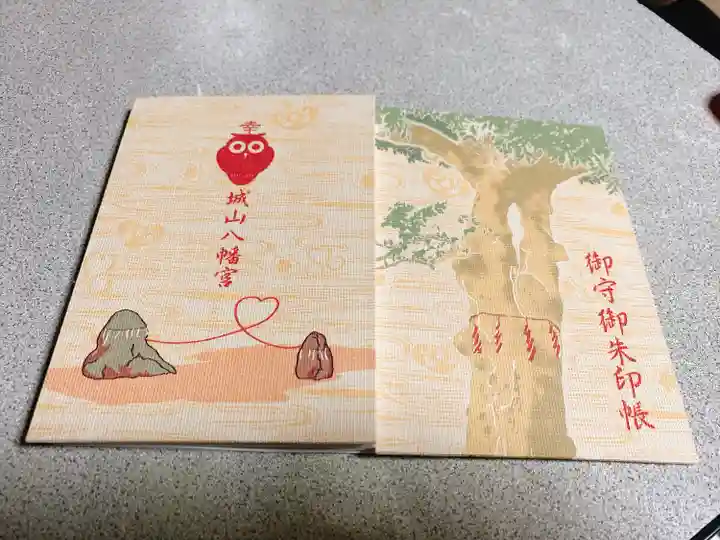 幸
城山八幡宮
御守御朱印帳